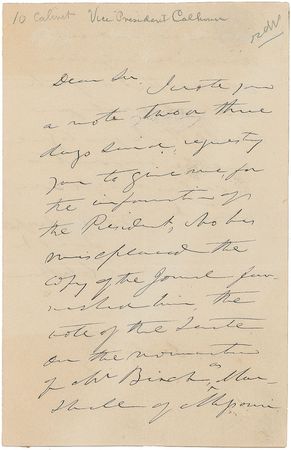 10 Cabinet Vice President Calhoun
Dear Sir. I wrote you
a note two or three
days since, requesting
you to give me for
the information of
the President, who has
misplaced the
copy of the Journal fur-
nished him, the
vote of the Senate
on the nomination
of Mr Birch, as Mar-
shall of